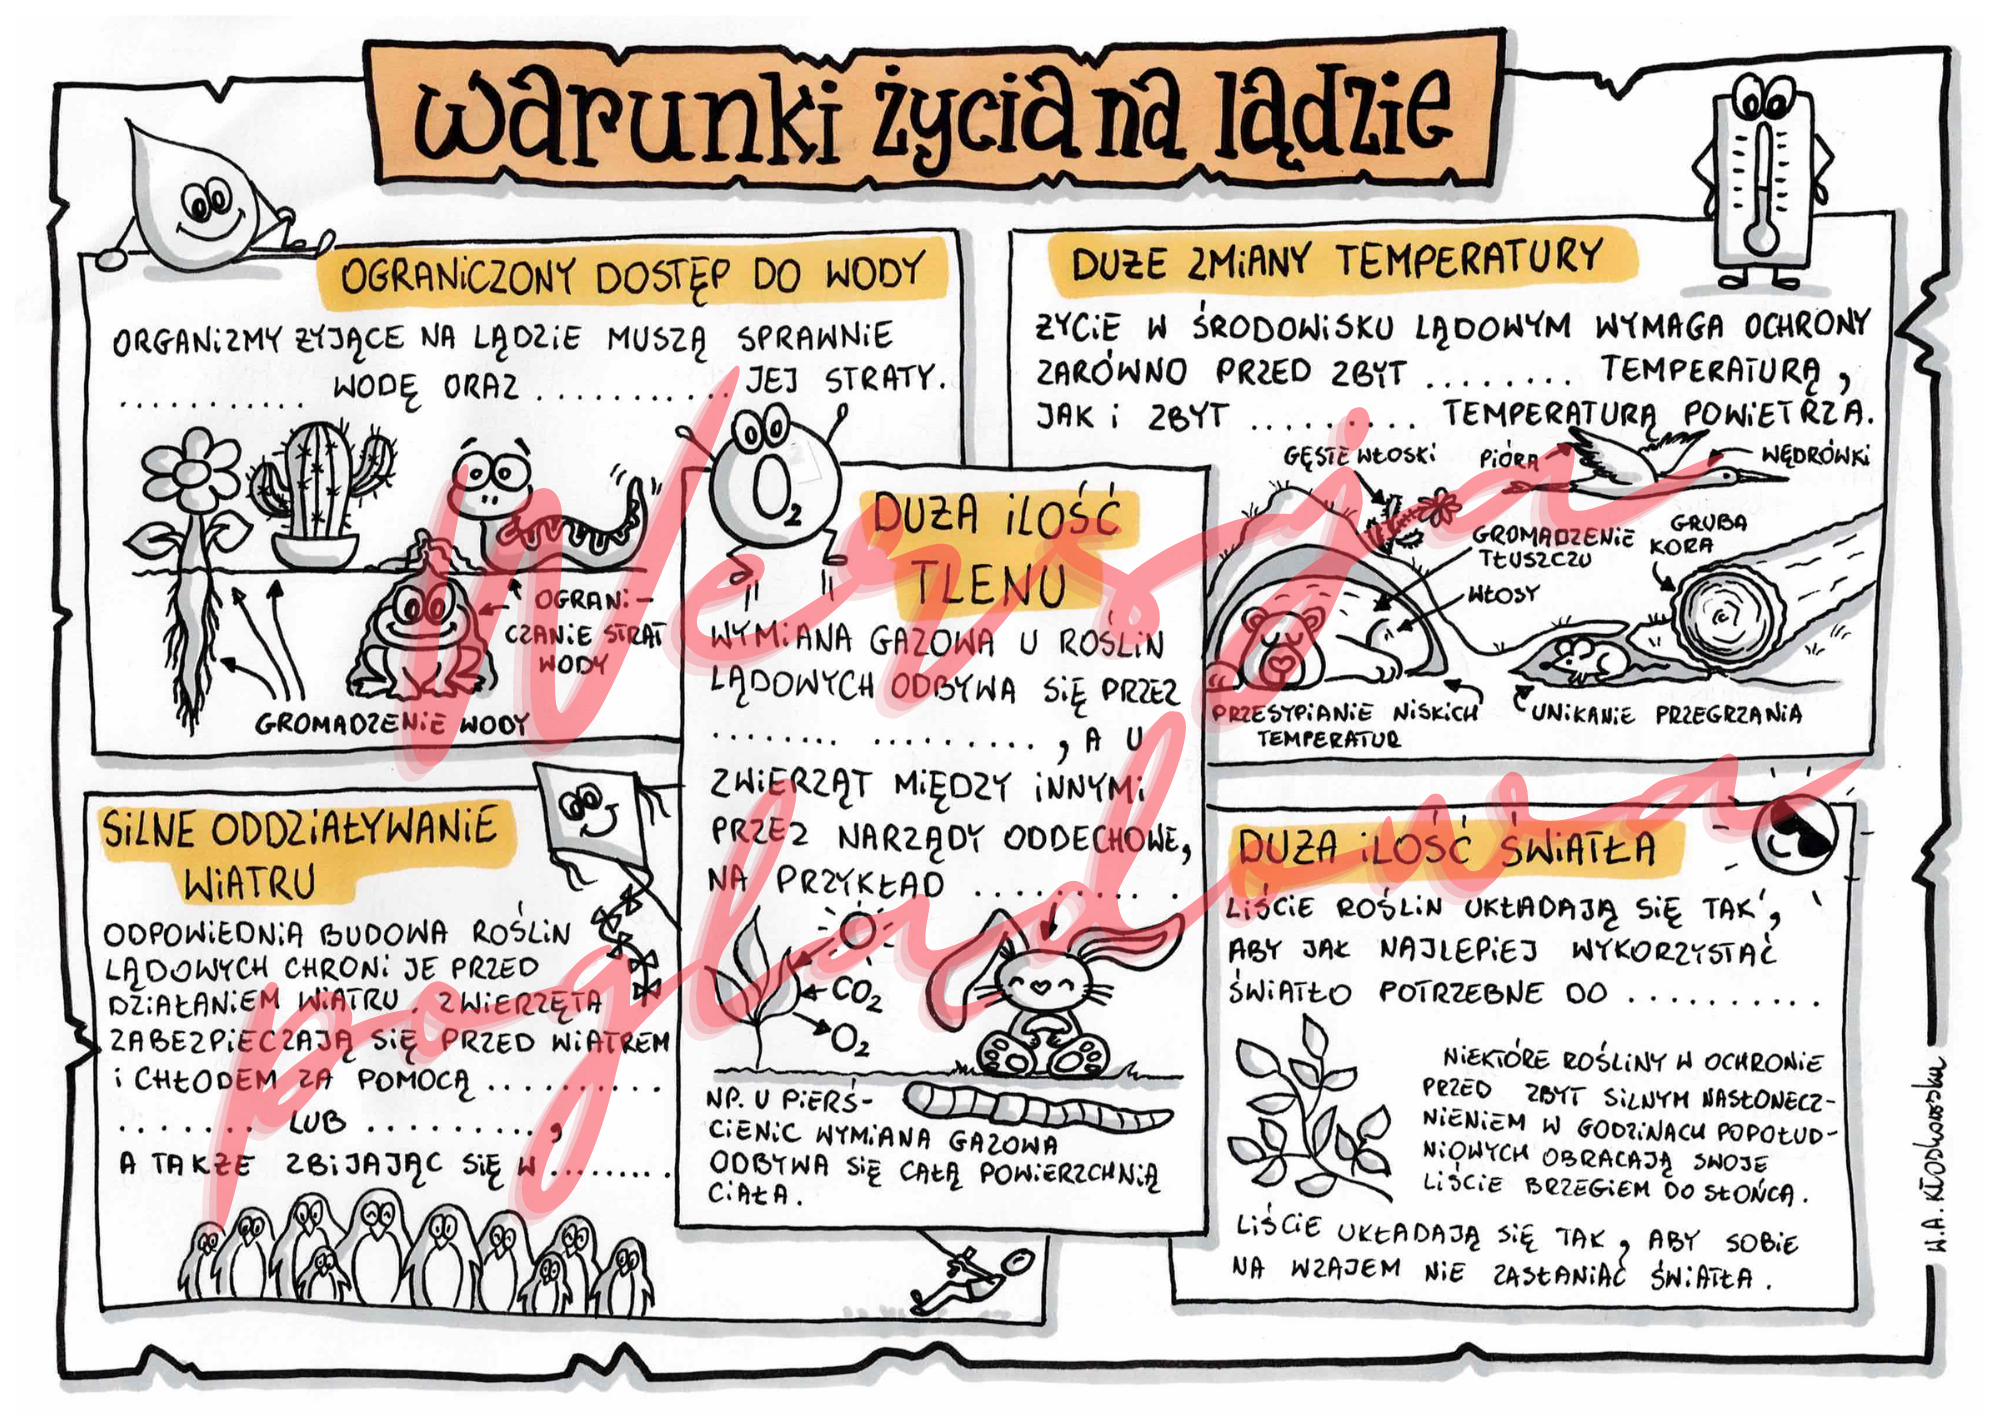 warunki życia na lądzie
OGRANiCZONY DOSTĘP DO WODY
ORGANiZMY ŻYJĄCE NA LĄDZiE MUSZĄ SPRAWNiE
........... WODĘ ORAZ ........... JEJ STRATY.
OGRANi-
CZANiE STRAT
WODY
GROMADZENiE WODY
DUŻE ZMiANY TEMPERATURY
ŻYCiE W ŚRODOWiSKU LĄDOWYM WYMAGA OCHRONY
ZARÓWNO PRZED ZBYT ........ TEMPERATURĄ,
JAK i ZBYT ......... TEMPERATURĄ POWiETRZA.
GĘSTE WŁOSKi
PiÓRA
WĘDRÓWKi
GROMADZENiE
TŁUSZCZU
GRUBA
KORA
WŁOSY
PRZESYPiANiE NiSKiCH
TEMPERATUR
UNiKANiE PRZEGRZANiA
O2
DUŻA iLOŚĆ
TLENU
WYMiANA GAZOWA U ROŚLiN
LĄDOWYCH ODBYWA SiĘ PRZEZ
........ ........., A U
ZWiERZĄT MiĘDZY iNNYMi
PRZEZ NARZĄDY ODDECHOWE,
NA PRZYKŁAD ......... .
CO2
O2
NP. U PiERŚ-
CiENiC WYMiANA GAZOWA
ODBYWA SiĘ CAŁĄ POWiERZCHNiĄ
CiAŁA.
SiLNE ODDZiAŁYWANiE
WiATRU
ODPOWiEDNiA BUDOWA ROŚLiN
LĄDOWYCH CHRONi JE PRZED
DZiAŁANiEM WiATRU. ZWiERZĘTA
ZABEZPiECZAJĄ SiĘ PRZED WiATREM
i CHŁODEM ZA POMOCĄ ..........
........ LUB ..........,
A TAKŻE ZBiJAJĄC SiĘ W ........
DUŻA iLOŚĆ ŚWiATŁA
LiŚCiE ROŚLiN UKŁADAJĄ SiĘ TAK,
ABY JAK NAJLEPiEJ WYKORZYSTAĆ
ŚWiATŁO POTRZEBNE DO ..........
NiEKTÓRE ROŚLiNY W OCHRONiE
PRZED ZBYT SiLNYM NASŁONECZ-
NiENiEM W GODZiNACH POPOŁUD-
NiOWYCH OBRACAJĄ SWOJE
LiŚCiE BRZEGiEM DO SŁOŃCA.
LiŚCiE UKŁADAJĄ SiĘ TAK, ABY SOBiE
NA WZAJEM NiE ZASŁANiAĆ ŚWiATŁA.
W.A. Kłosłowski
Wersja
poglądowa